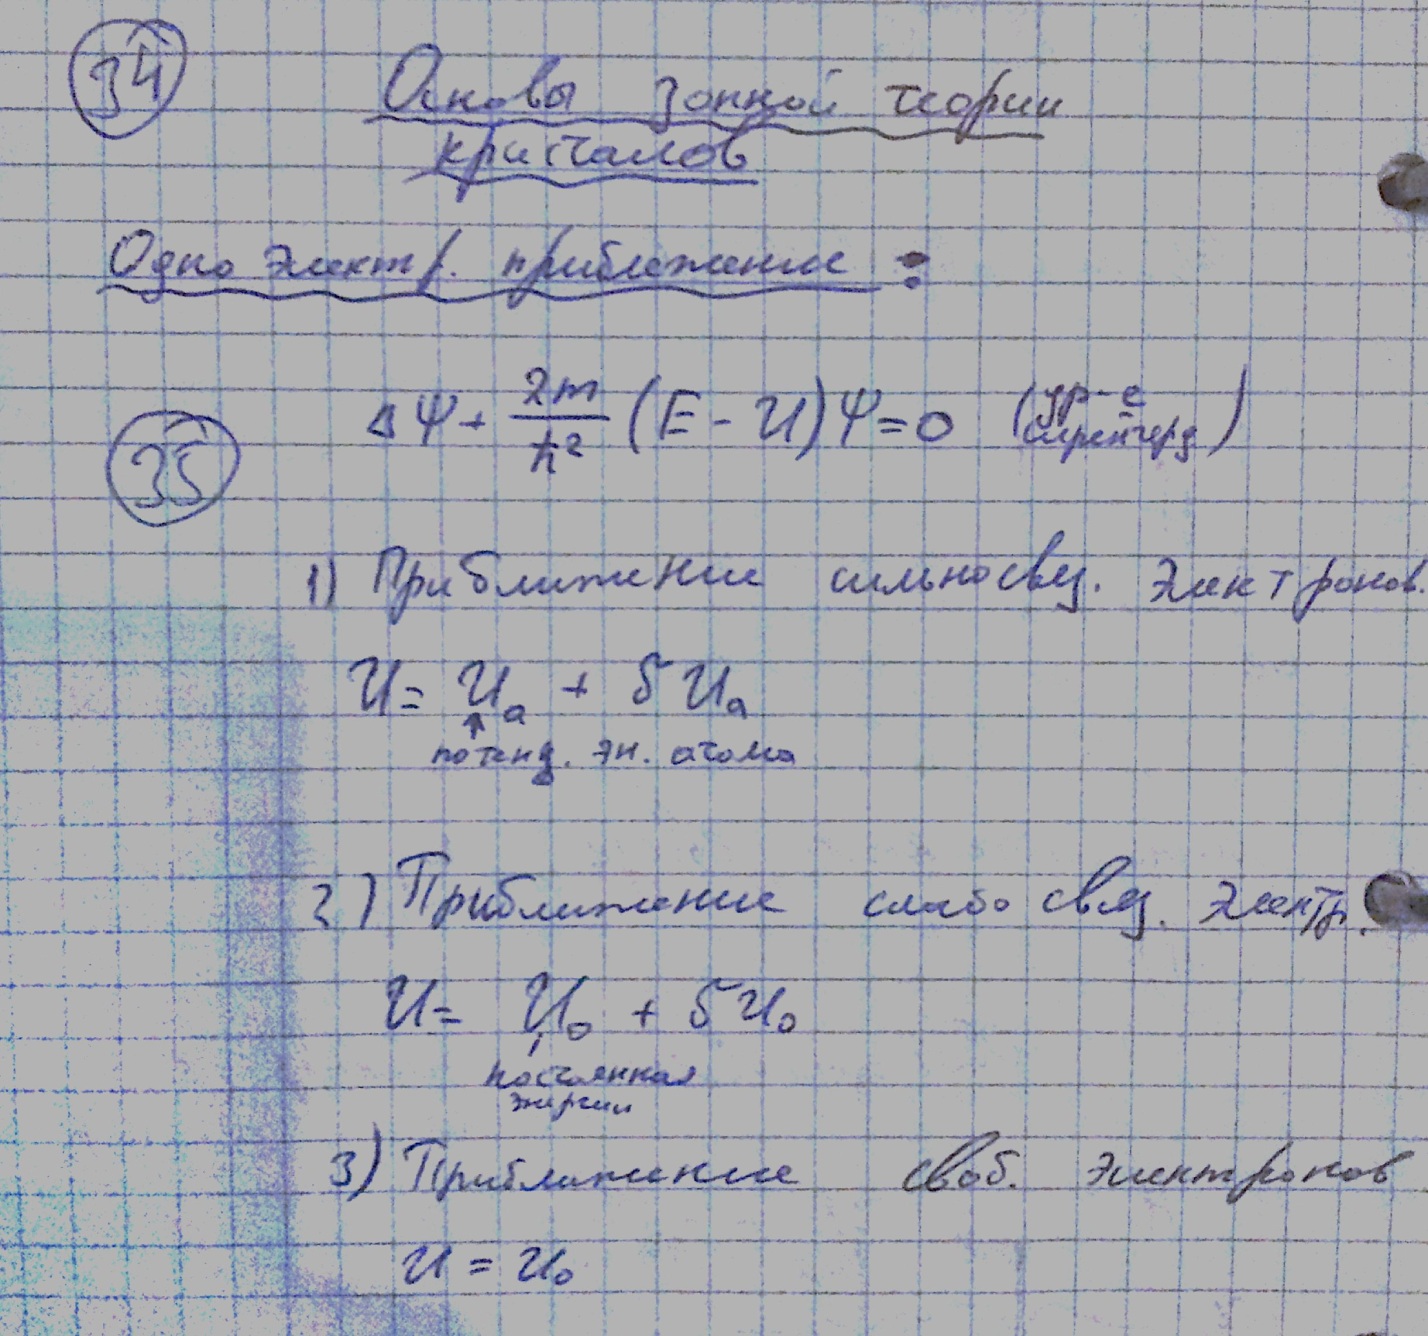 34
Основы зонной теории
кристалов
Одноэлектр. приближение :
Δψ + 2m/ħ² (E - U)ψ = 0 (ур-е Шрёнгерд)
35
1) Приближение сильносвяз. электронов.
U = Uₐ + δUₐ
потенц. эн. атома
2) Приближение слабо связ. электр.
U = U₀ + δU₀
постоянная
энергии
3) Приближение своб. электронов
U = U₀